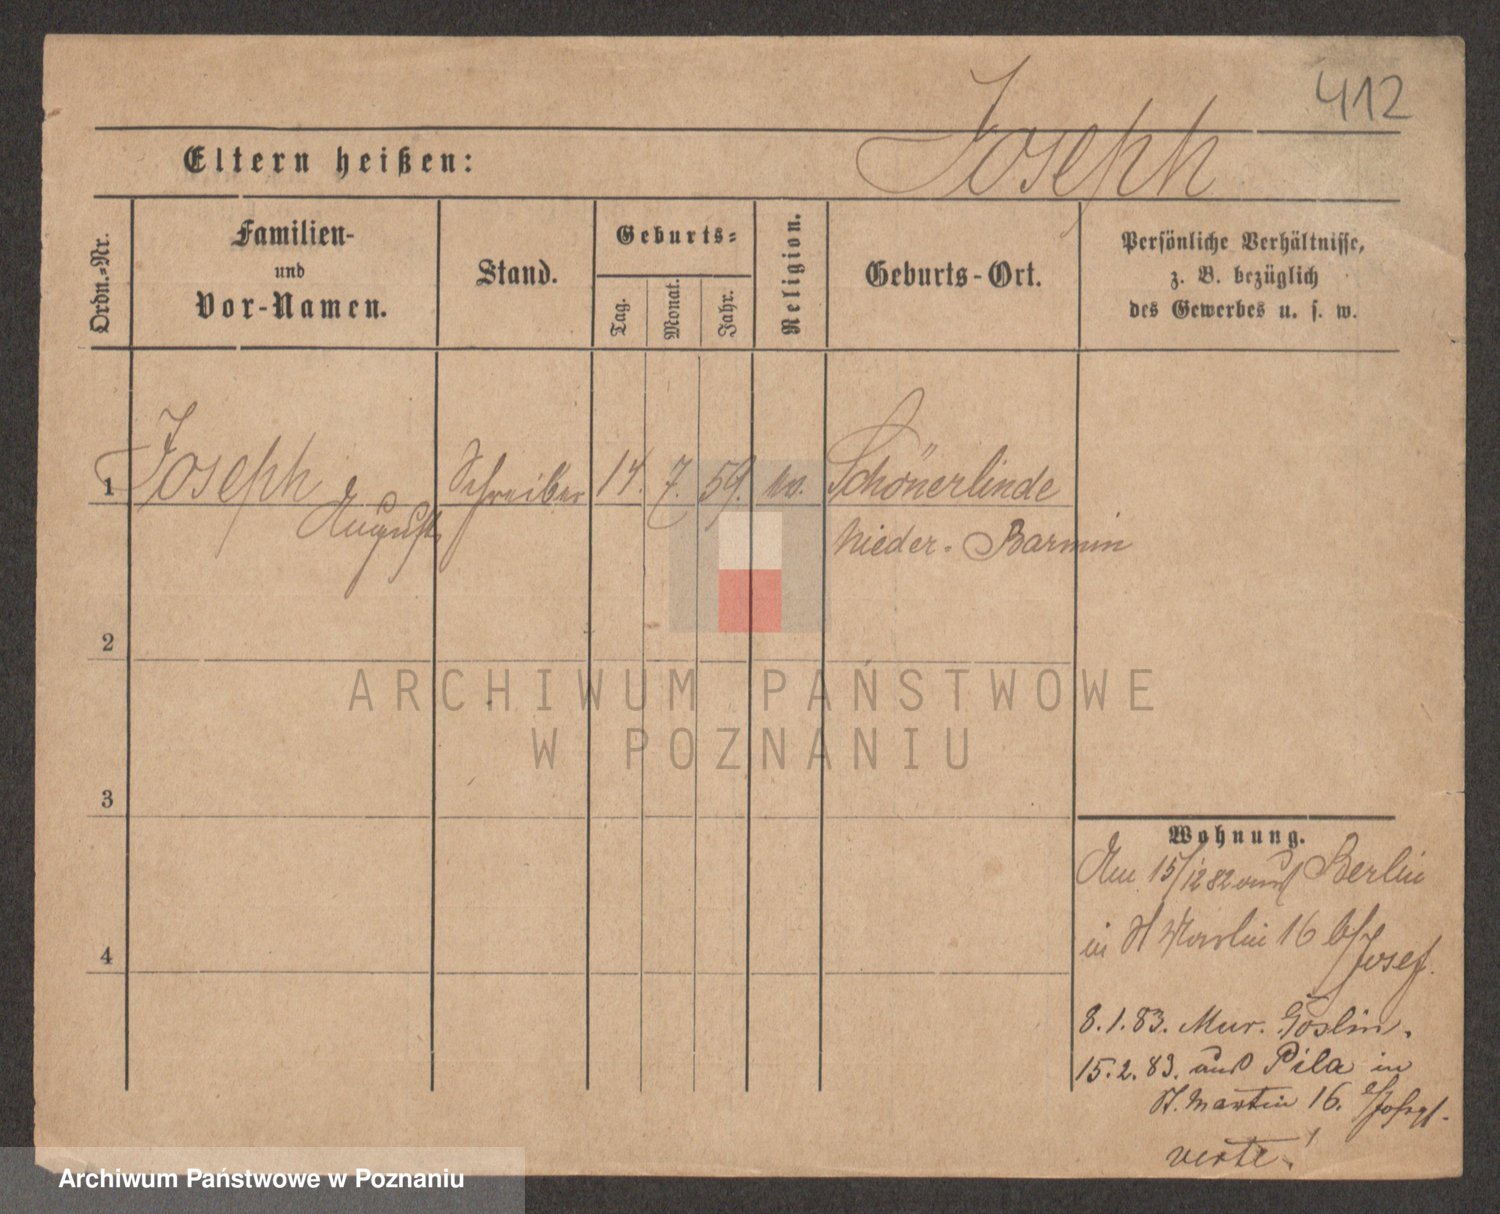 412
Joseph
Eltern heißen:
Ordn.-Nr.
Familien-
und
Vor-Namen.
Stand.
Geburts-
Tag.
Monat.
Jahr.
Religion.
Geburts-Ort.
Persönliche Verhältnisse,
z. B. bezüglich
des Gewerbes u. s. w.
1 Joseph Schreiber 14. 7. 59. ev. Schönerlinde
August
Nieder-Barmin
2
ARCHIWUM PAŃSTWOWE
W POZNANIU
3
Wohnung.
Am 15/12 82 aus Berlin
in St Martin 16 b/Josef.
4
8.1.83. Mur. Goslin.
15.2.83. aus Pila in
St. Martin 16. b/Josef.
verte!
Archiwum Państwowe w Poznaniu